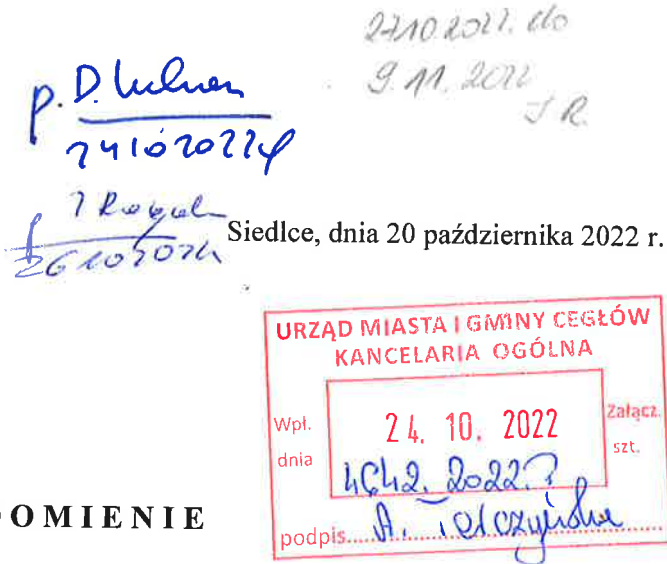 27.10.2022. do
9.11.2022
J R.
p. D.
24102022
26102022
Siedlce, dnia 20 października 2022 r.
URZĄD MIASTA I GMINY CEGŁÓW
KANCELARIA OGÓLNA
Wpł. dnia 24. 10. 2022 Załącz. szt.
4642. 2022.
podpis.......... A.
OMIENIE